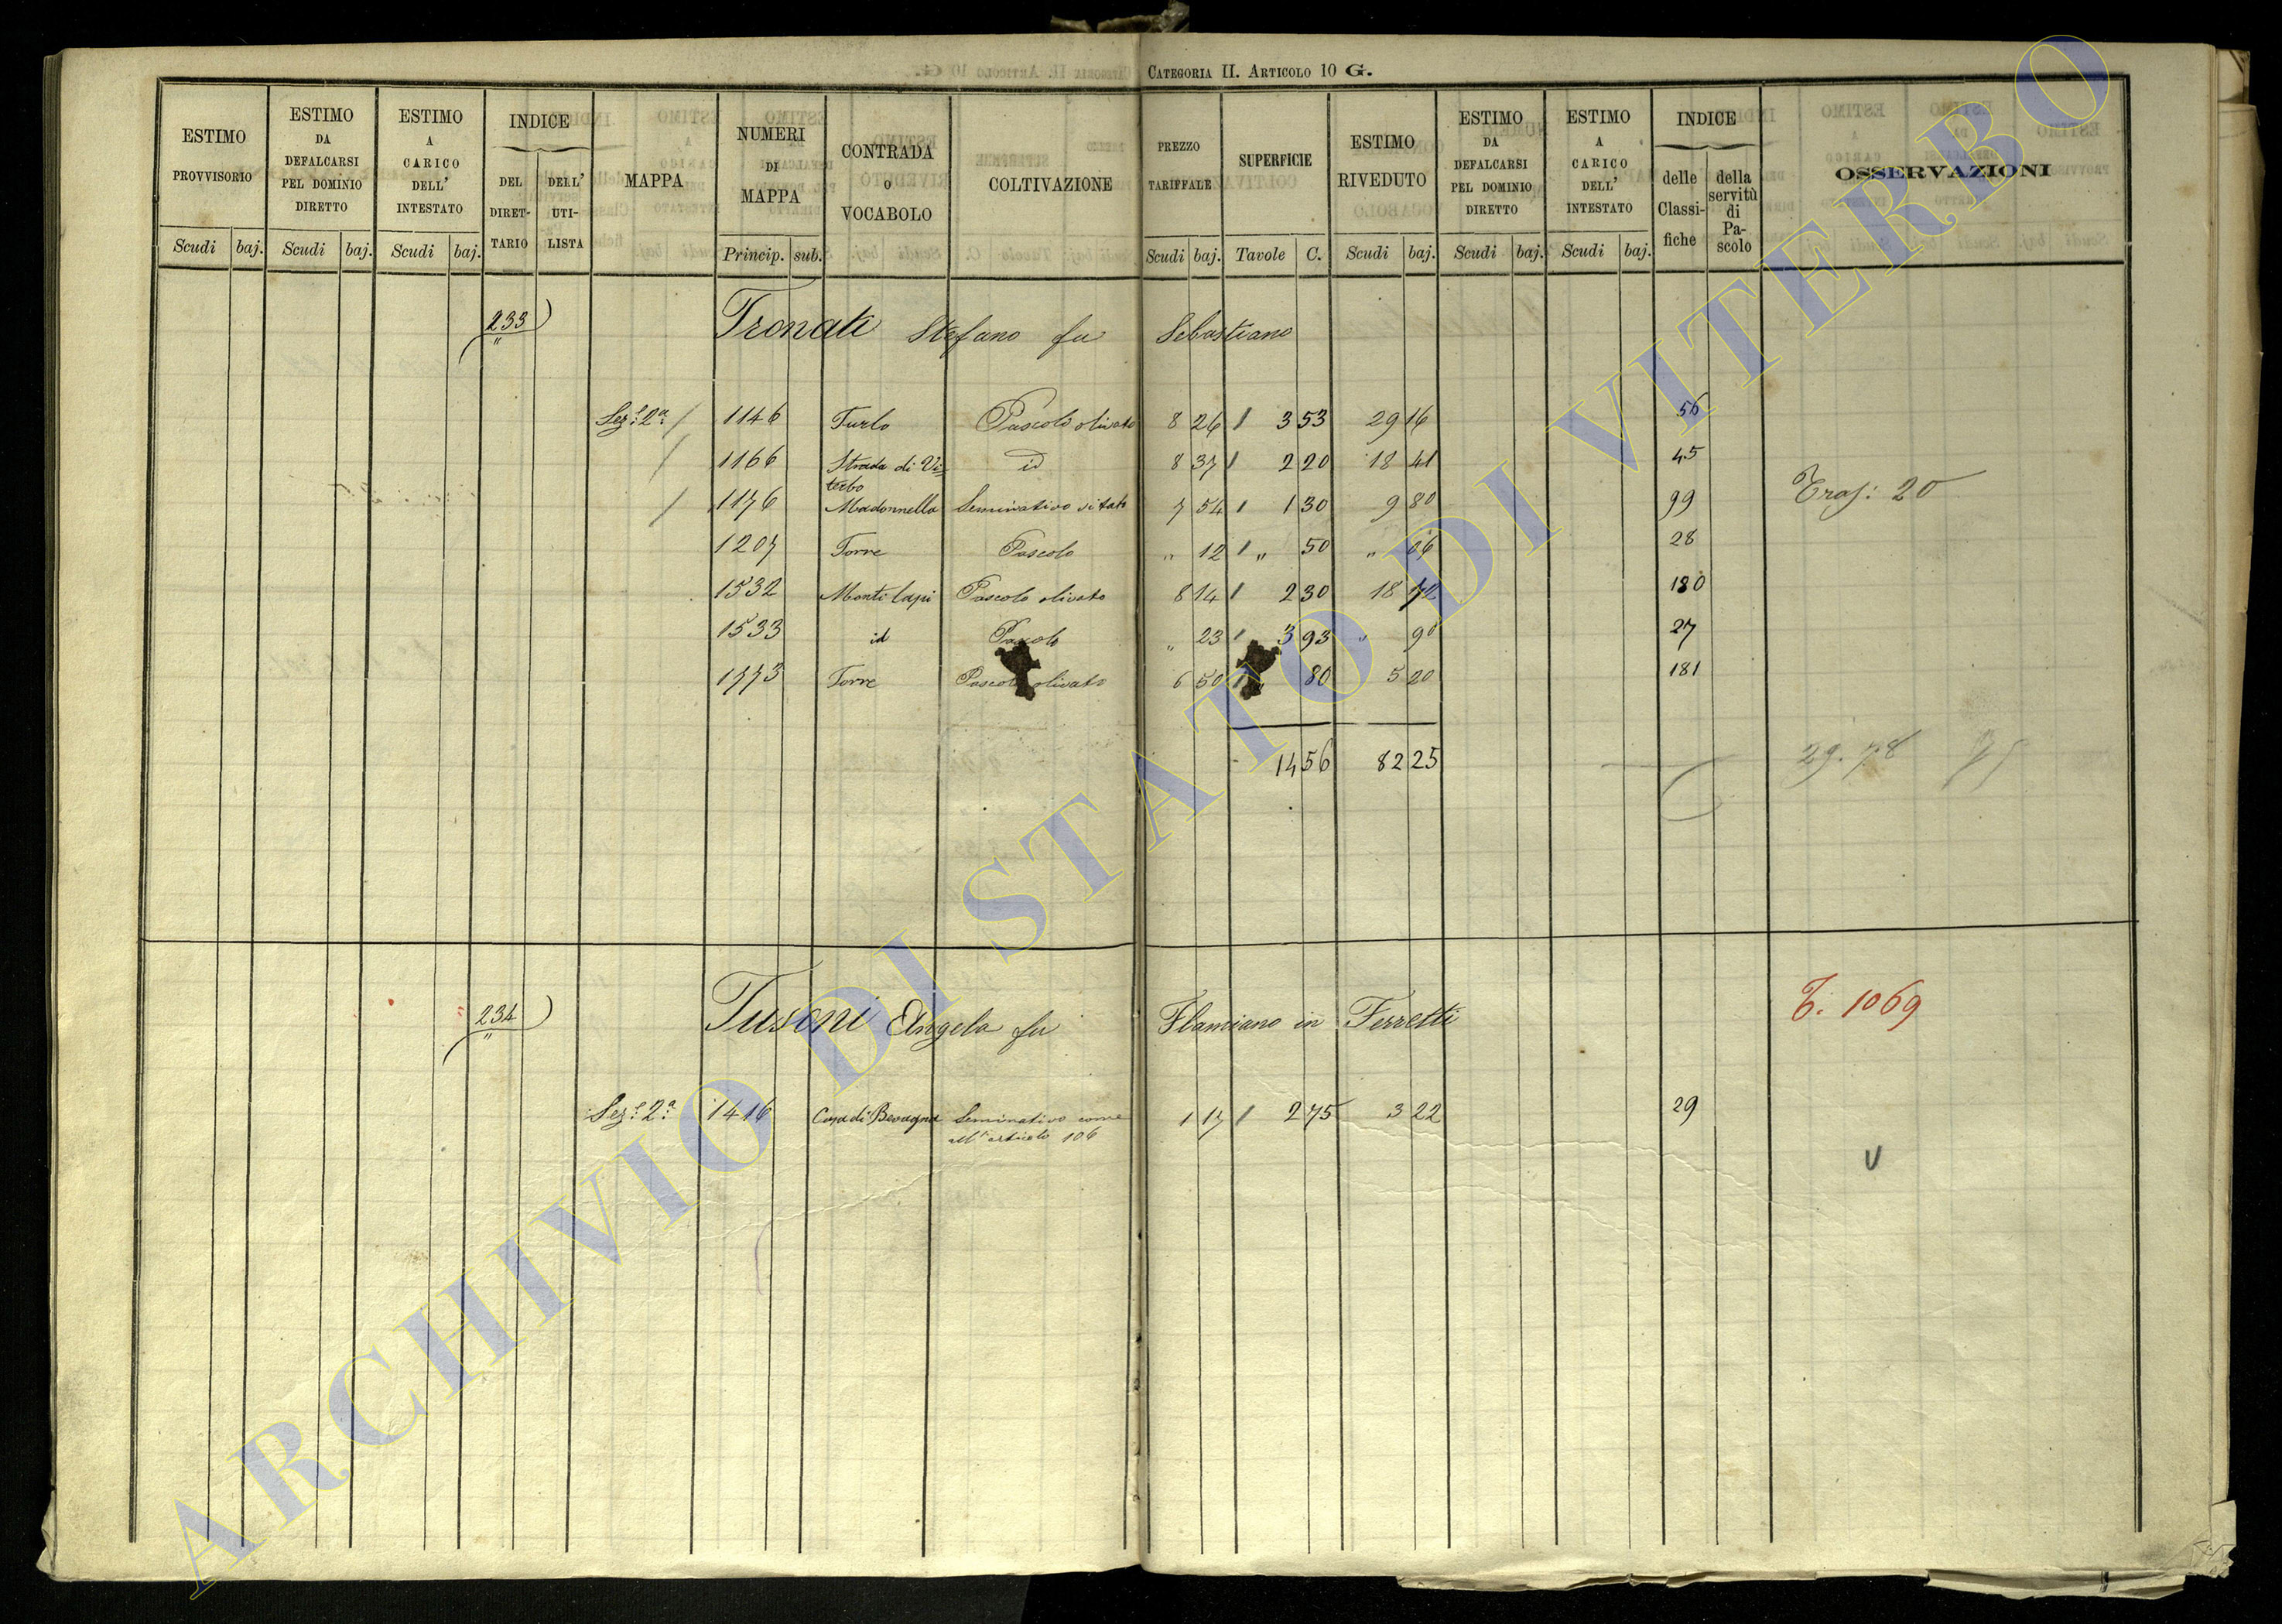 CATEGORIA II. ARTICOLO 10 G.
ESTIMO PROVVISORIO
ESTIMO DA DEFALCARSI PEL DOMINIO DIRETTO
ESTIMO A CARICO DELL' INTESTATO
INDICE
DEL DIRET- TARIO
DELL' UTI- LISTA
MAPPA
NUMERI DI MAPPA
CONTRADA O VOCABOLO
COLTIVAZIONE
PREZZO TARIFFALE
SUPERFICIE
ESTIMO RIVEDUTO
ESTIMO DA DEFALCARSI PEL DOMINIO DIRETTO
ESTIMO A CARICO DELL' INTESTATO
INDICE
delle Classi- fiche
della servitù di Pa- scolo
OSSERVAZIONI
Scudi baj. Scudi baj. Scudi baj. Princip. sub. Scudi baj. Tavole C. Scudi baj. Scudi baj. Scudi baj.
233 Tronati Stefano fu Sebastiano
Sez.e 2a / 1146 Turlo Pascolo olivato 8 26 / 3 53 29 16 56
/ 1166 Strada di Vi- terbo id 8 37 / 2 20 18 41 45
/ 1176 Madonnella Seminativo vitato 7 54 / 1 30 9 80 99 Tras: 20
1207 Torre Pascolo " 12 / " 50 " 06 28
1532 Monti Lupi Pascolo olivato 8 14 / 2 30 18 72 180
1533 id Pascolo " 23 / 3 93 " 90 27
1773 Torre Pascolo olivato 6 50 / " 80 5 20 181
14 56 82 25 29.78
234 Tusoni Angela fu Flamiano in Ferretti T. 1069
Sez.e 2a 1416 Casa di Bevagna Seminativo come all'articolo 106 1 17 / 2 75 3 22 29
ARCHIVIO DI STATO DI VITERBO